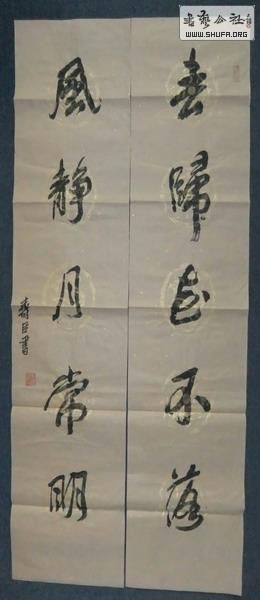 春歸花不落
風靜月常明
壽臣書
書藝公社
WWW.SHUFA.ORG